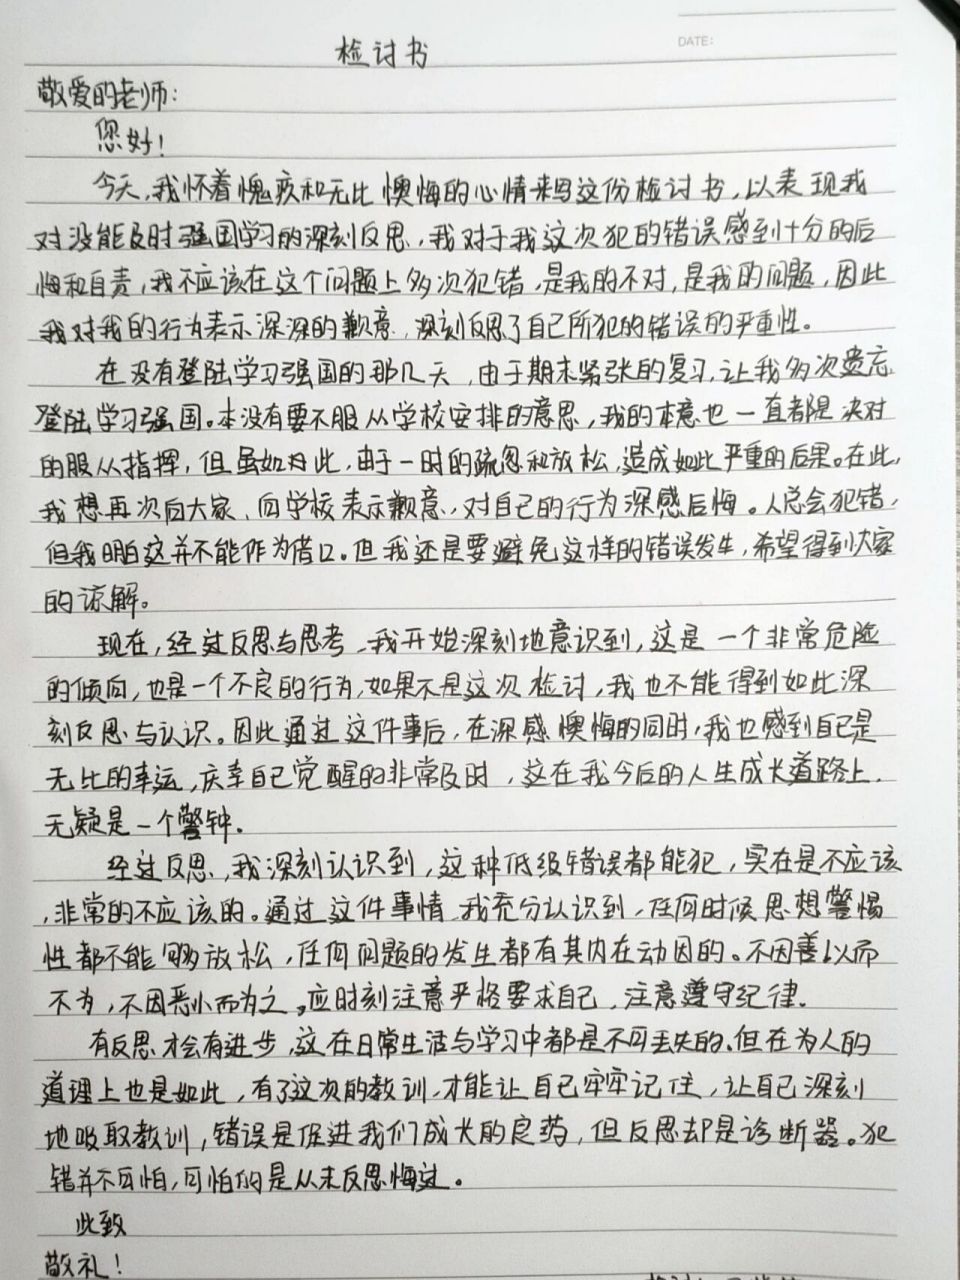 DATE:
检讨书
敬爱的老师:
您好!
今天,我怀着愧疚和无比懊悔的心情来写这份检讨书,以表现我
对没能及时强国学习的深刻反思,我对于我这次犯的错误感到十分的后
悔和自责,我不应该在这个问题上多次犯错,是我的不对,是我的问题,因此
我对我的行为表示深深的歉意,深刻反思了自己所犯的错误的严重性。
在没有登陆学习强国的那几天,由于期末紧张的复习,让我多次遗忘
登陆学习强国。本没有要不服从学校安排的意思,我的本意也一直都是决对
的服从指挥,但虽如为此,由于一时的疏忽和放松,造成如此严重的后果。在此,
我想再次向大家、向学校表示歉意,对自己的行为深感后悔。人总会犯错,
但我明白这并不能作为借口。但我还是要避免这样的错误发生,希望得到大家
的谅解。
现在,经过反思与思考,我开始深刻地意识到,这是一个非常危险
的倾向,也是一个不良的行为,如果不是这次检讨,我也不能得到如此深
刻反思与认识。因此通过这件事后,在深感懊悔的同时,我也感到自己是
无比的幸运,庆幸自己觉醒的非常及时,这在我今后的人生成长道路上,
无疑是一个警钟.
经过反思,我深刻认识到,这种低级错误都能犯,实在是不应该
,非常的不应该的。通过这件事情,我充分认识到,任何时候思想警惕
性都不能够放松,任何问题的发生都有其内在动因的。不因善小而
不为,不因恶小而为之。应时刻注意严格要求自己,注意遵守纪律.
有反思才会有进步,这在日常生活与学习中都是不可丢失的.但在为人的
道理上也是如此,有了这次的教训,才能让自己牢牢记住,让自己深刻
地吸取教训,错误是促进我们成长的良药,但反思却是诊断器。犯
错并不可怕,可怕的是从未反思悔过。
此致
敬礼!